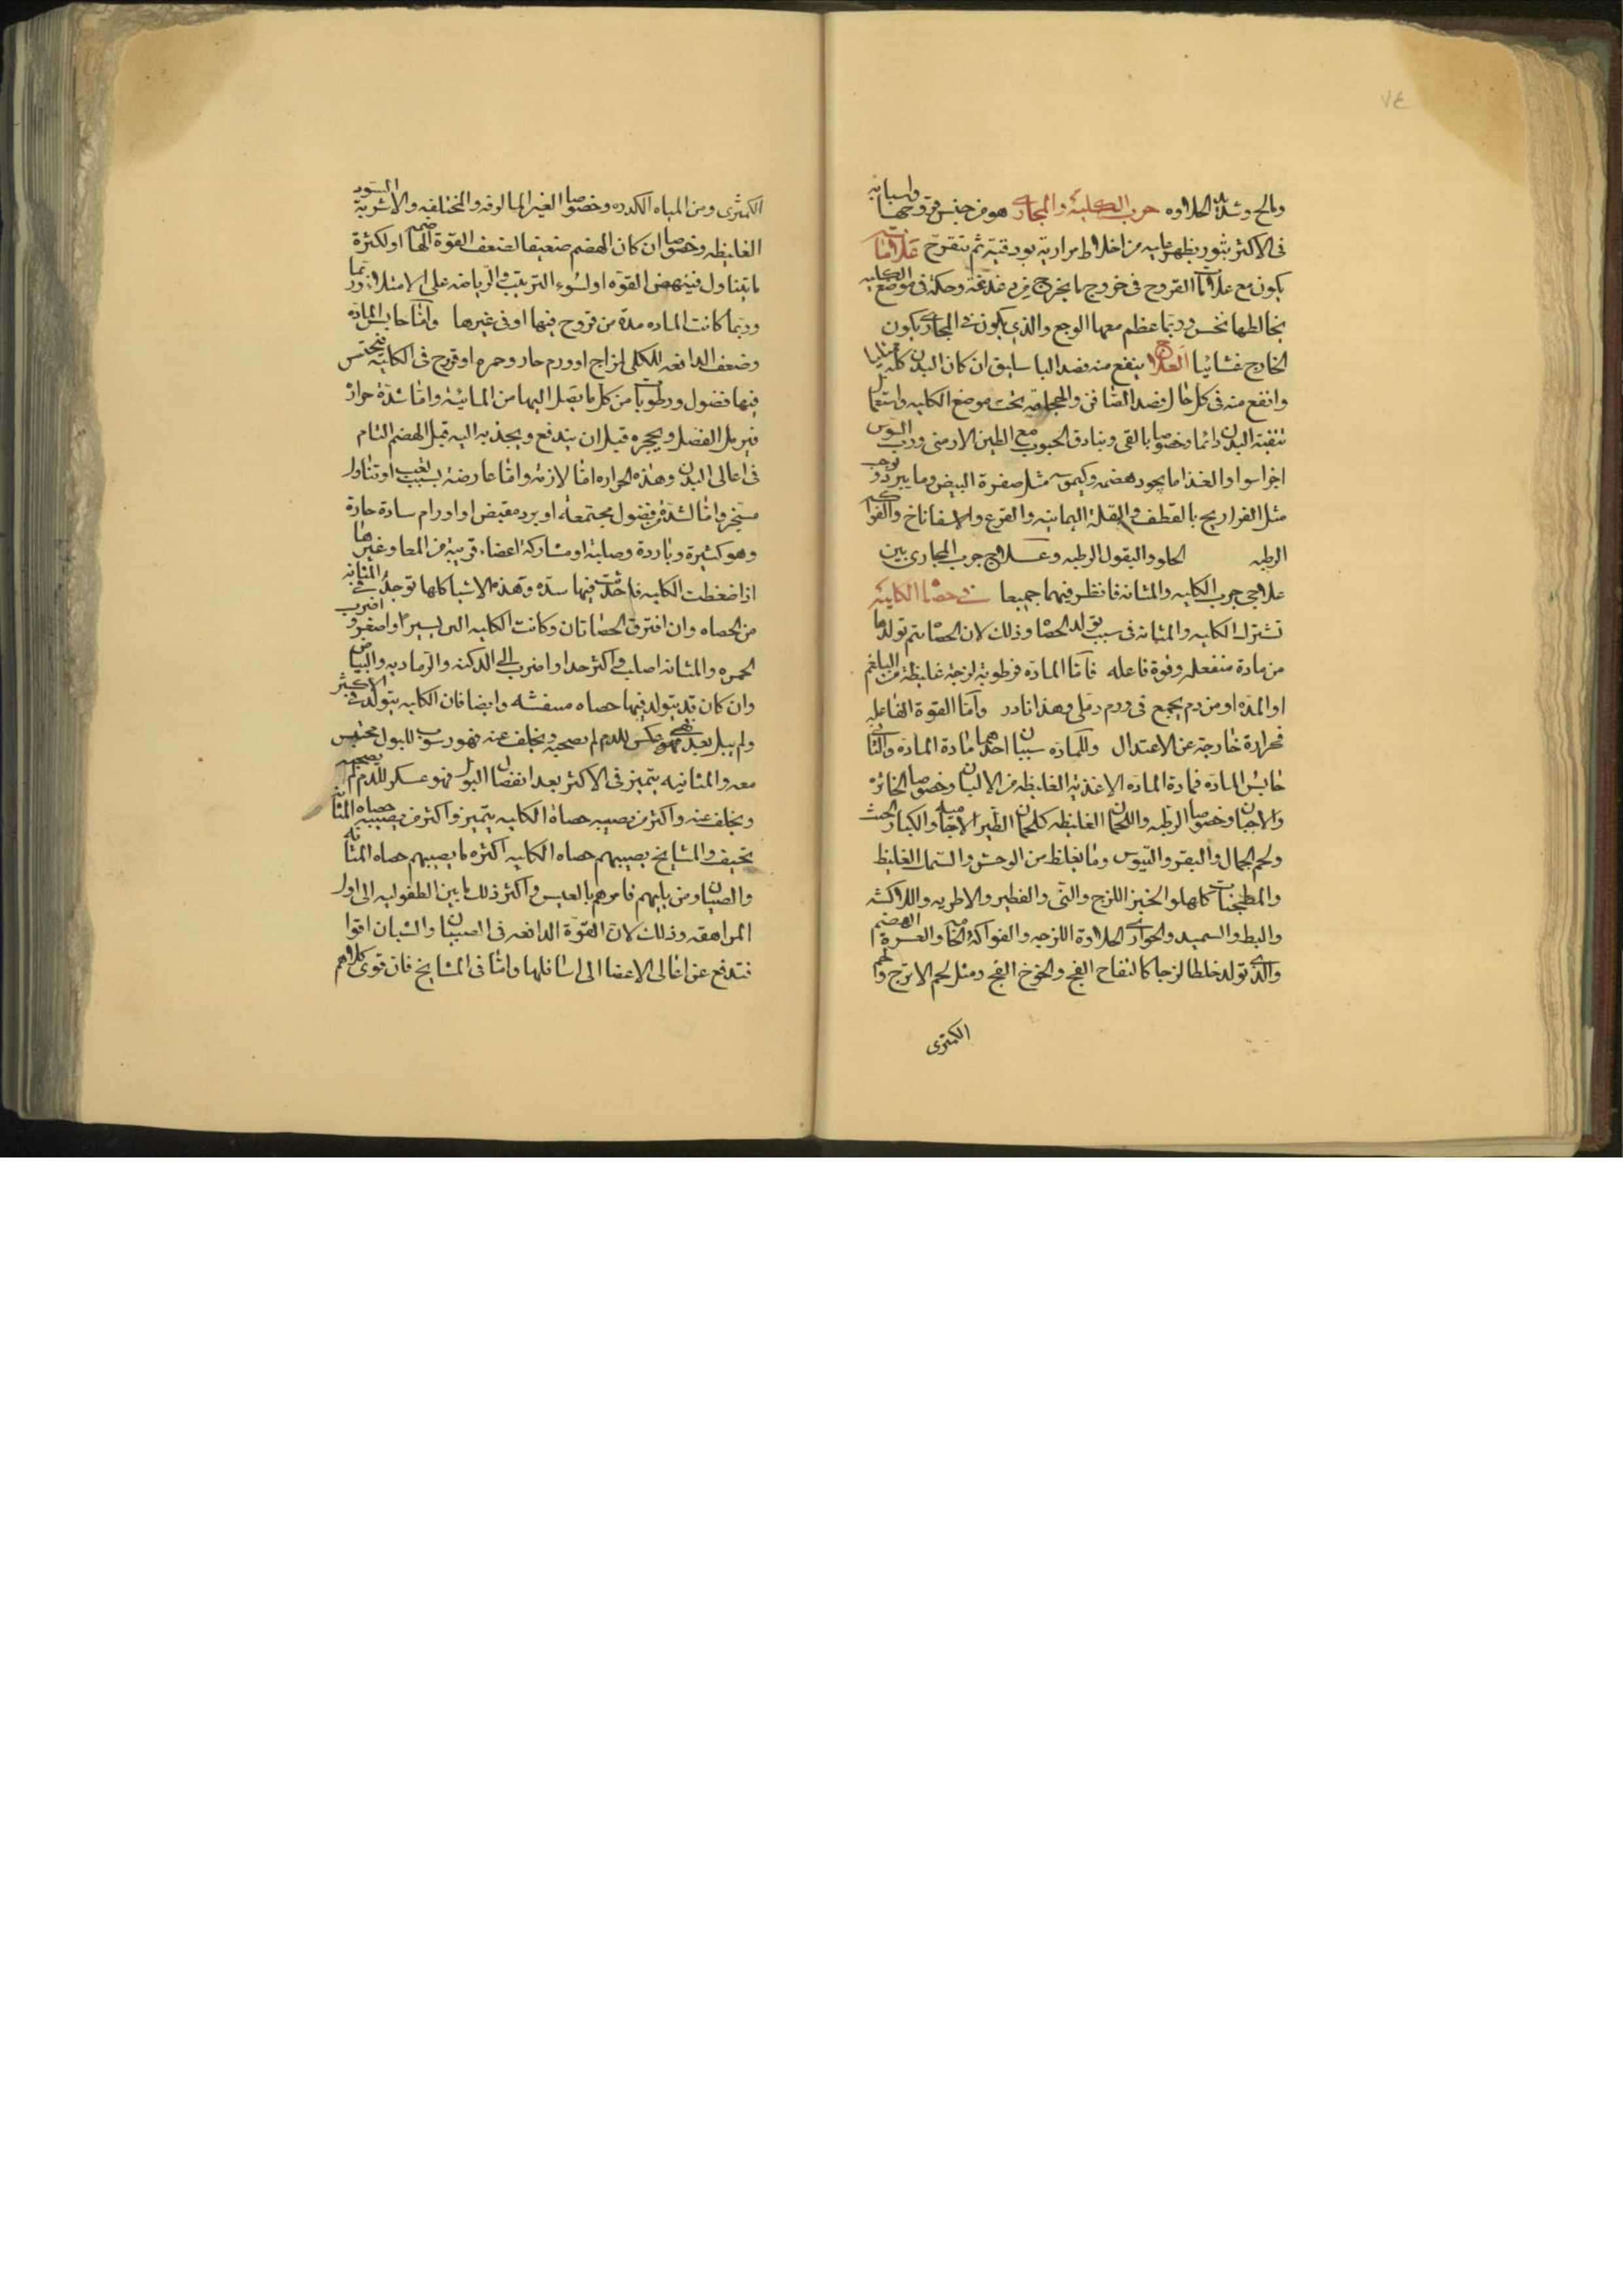 ٧٤
ومالح وشديد الحلاوه جرب الكلية والمجارى هو من جنس قروحها واسبابه
فى الاكثر بثور يظهر عليه من اخلاط مرارية بورقية ثم تتقرح علاماته
يكون مع علامات القروح فى خروج ما يخرج دغدغة وحكة فى موضع الكليه
يخالطها نخس وربما عظم معها الوجع والذى يكون فى المجارى يكون
الخارج غشائيا العلاج ينفع منه فصد الباسليق ان كان البدن كله ممتليا
وانفع منه فى كل حال فصد الصافن والحجامة تحت موضع الكليه واستعمال
تنقية البدن دائما وخصوصا بالقى وبنادق الحبوب مع الطين الارمنى ورب السوس
اجزا سوا والغذا ما يجود هضمه وكيموسه مثل صفرة البيض وما يبرد ويرطب
مثل الفراريج بالقطف والبقلة اليمانيه والقرع والاسفاناخ والفواكه
الرطبه الحلو والبقول الرطبه وعلاج جرب المجارى بين
علاجى جرب الكليه والمثانه فانظر فيهما جميعا فى حصاة الكلية
تشترك الكليه والمثانه فى سبب تولد الحصاة وذلك لان الحصاة يتم تولدها
من مادة منفعله وقوة فاعله فاما المادة فرطوبة لزجة غليظة من البلغم
او المدة او من دم يجمع فى ورم دملى وهذا نادر واما القوة الفاعليه
فحرارة خارجة عن الاعتدال وللمادة سببان احدهما مادة المادة والثانى
حابس المادة فمادة المادة الاغذية الغليظه من الالبان وخصوصا الخاثرة
والاجبان وخصوصا الرطبه واللحمان الغليظه كلحمان الطير الاجاميه والكبار الجثث
ولحم الجمال والبقر والتيوس وما يغلظ من الوحش والسمك الغليظ
والمطجنات كلها والخبز اللزج والنى والفطير والاطريه واللاكشه
والبط والسميد والحوارى الحلاوة اللزجه والفواكه الحامية والعسرة الهضم
والذى تولد خلطا لزجا كالتفاح الفج والخوخ الفج ومثل لحم الاترج ولحم
الكمثرى
الكمثرى ومن المياه الكدره وخصوصا الغير المالوفه والمختلفه والاشربة السود
الغليظه وخصوصا ان كان الهضم ضعيفا لضعف القوة الهاضمه او لكثرة
ما يتناول فينهض القوه او لسوء الترتيب والرياضه على الامتلا وربما
وربما كانت الماده مدة من قروح فيها او فى غيرها واما حابس المادة
وضعف الدافعه للكلى لمزاج او ورم حار وحمره او قروح فى الكليه فيحتبس
فيها فضول ورطوبات من كل ما يصل اليها من المائية واما شدة حرارة
فيرمل الفضل ويحجره قبل ان يندفع ويجذبه اليه قبل الهضم التام
فى اعالى البدن وهذه الحراره اما لازمة واما عارضة بسبب تعب او تناول
مسخن واما لسدة من فضول مجتمعة او برد مقبض او اورام سادة حارة
وهو كثيرة وباردة وصلبة او مشاركة اعضاء قريبة من المعا وغيرها
اذا ضغطت الكليه فاحدثت فيها سدة وهذه الاشيا كلها توجد فى المثانه
من الحصاه وان افترق الحصاتان وكانت الكليه الين يسيرا واصغر واضرب
الحمره والمثانه اصلب واكثر جدا واضرب الى الدكنه والرماديه والبياض
وان كان قد يتولد فيها حصاه وايضا فان الكليه يتولد فى الاكثر
معه والمثانيه يتميز فى الاكثر بعد انفصال البول فهو عسكر للدم لم يصحبه
ويخلف عنه واكثر من يصيبه حصاة الكليه يتميز واكثر من يصيبه حصاه المثانه
نحيف والمشايخ يصيبهم حصاه الكليه اكثره ما يصيبهم حصاه المثانه
والصبيان ومن يليهم فامرهم بالعكس واكثر ذلك ما بين الطفوليه الى اول
المراهقه وذلك لان القوة الدافعه فى الصبيان والشبان اقوا
فتدفع عن اعالى الاعضا الى اسافلها واما فى المشايخ فان قوى كلاهم